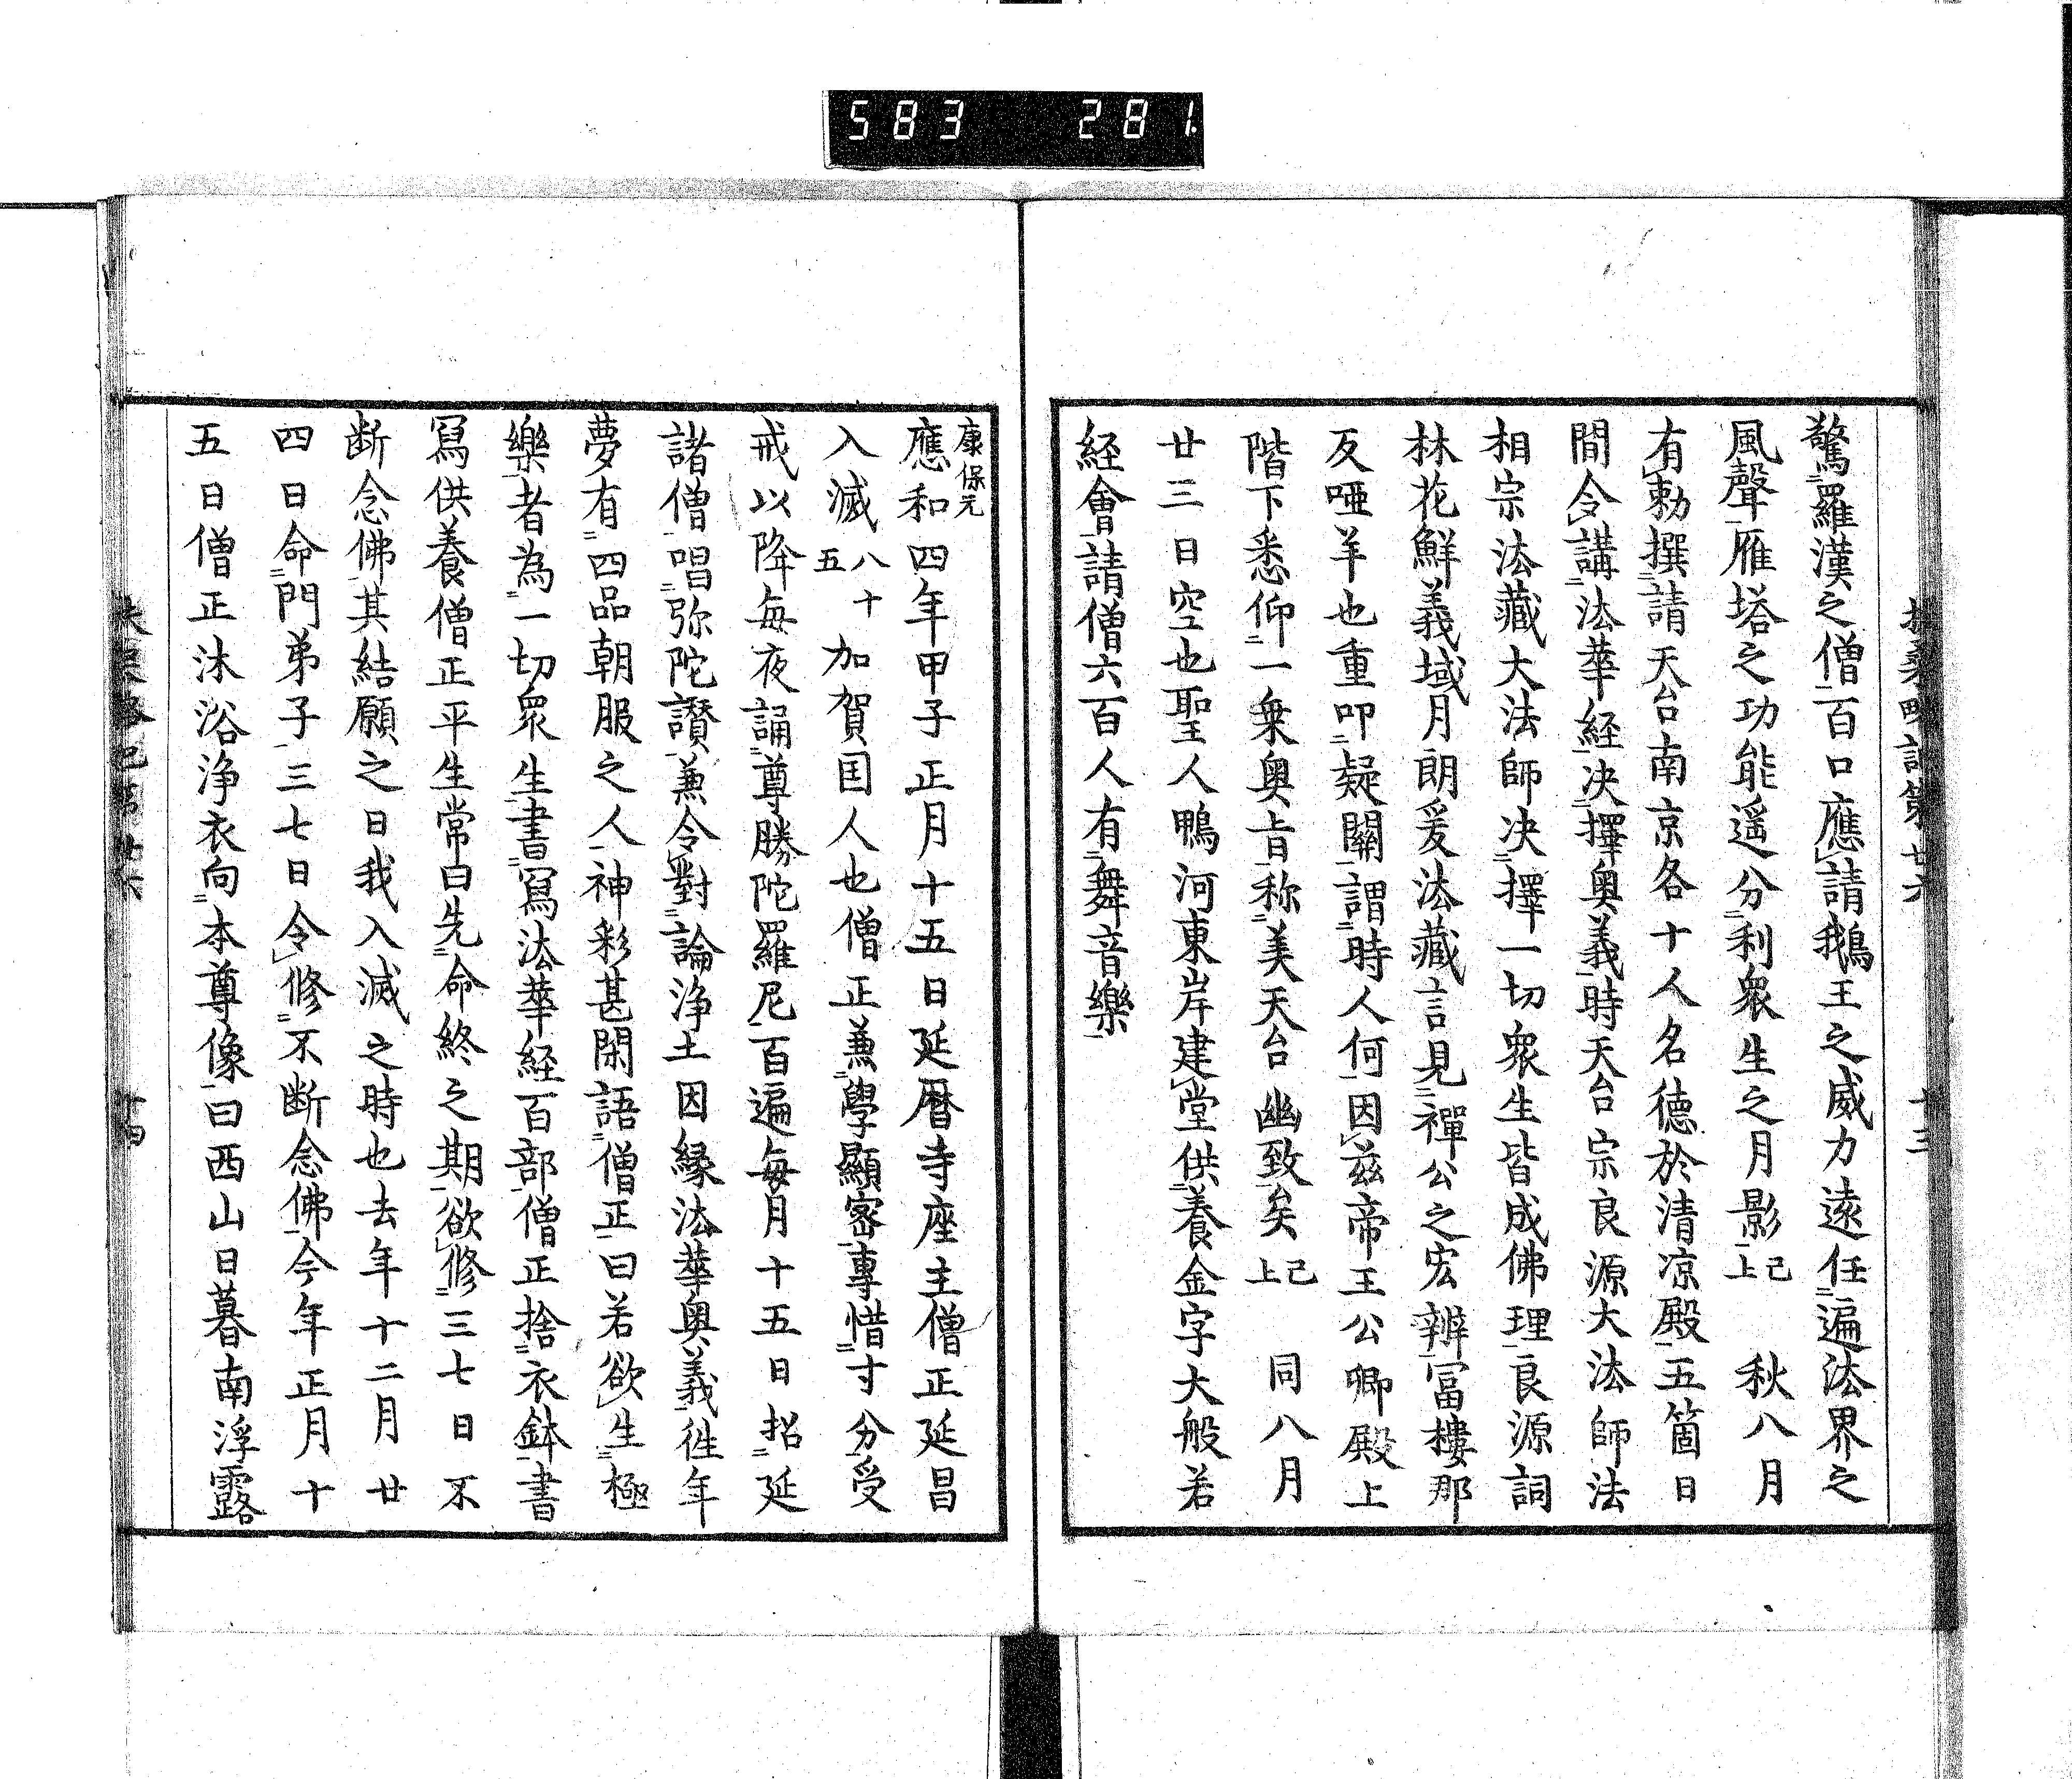 583 281.
扶桑略記第廿六 十三
驚羅漢之僧百口應請鵝王之威力遠任遍法界之
風聲雁塔之功能遥分利衆生之月影已上 秋八月
有勅撰請天台南京各十人名德於清凉殿五箇日
間令講法華経決擇奥義時天台宗良源大法師法
相宗法藏大法師决擇一切衆生皆成佛理良源詞
林花鮮義域月朗爰法藏言見禪公之宏辨冨樓那
反啞羊也重叩疑關謂時人何因茲帝王公卿殿上
階下悉仰一乗奥旨称美天台幽致矣已上 同八月
廿三日空也聖人鴨河東岸建堂供養金字大般若
経會請僧六百人有舞音樂
康保元
應和四年甲子正月十五日延暦寺座主僧正延昌
入滅八十五加賀国人也僧正兼學顯密專惜寸分受
戒以降毎夜誦尊勝陀羅尼百遍毎月十五日招延
諸僧唱弥陀讃兼令對論淨土因縁法華奥義徃年
夢有四品朝服之人神彩甚閑語僧正曰若欲生極
樂者為一切衆生書寫法華経百部僧正捨衣鉢書
寫供養僧正平生常曰先命終之期欲修三七日不
断念佛其結願之日我入滅之時也去年十二月廿
四日命門弟子三七日令修不断念佛今年正月十
五日僧正沐浴淨衣向本尊像曰西山日暮南浮露
扶桑略記第廿六 十四